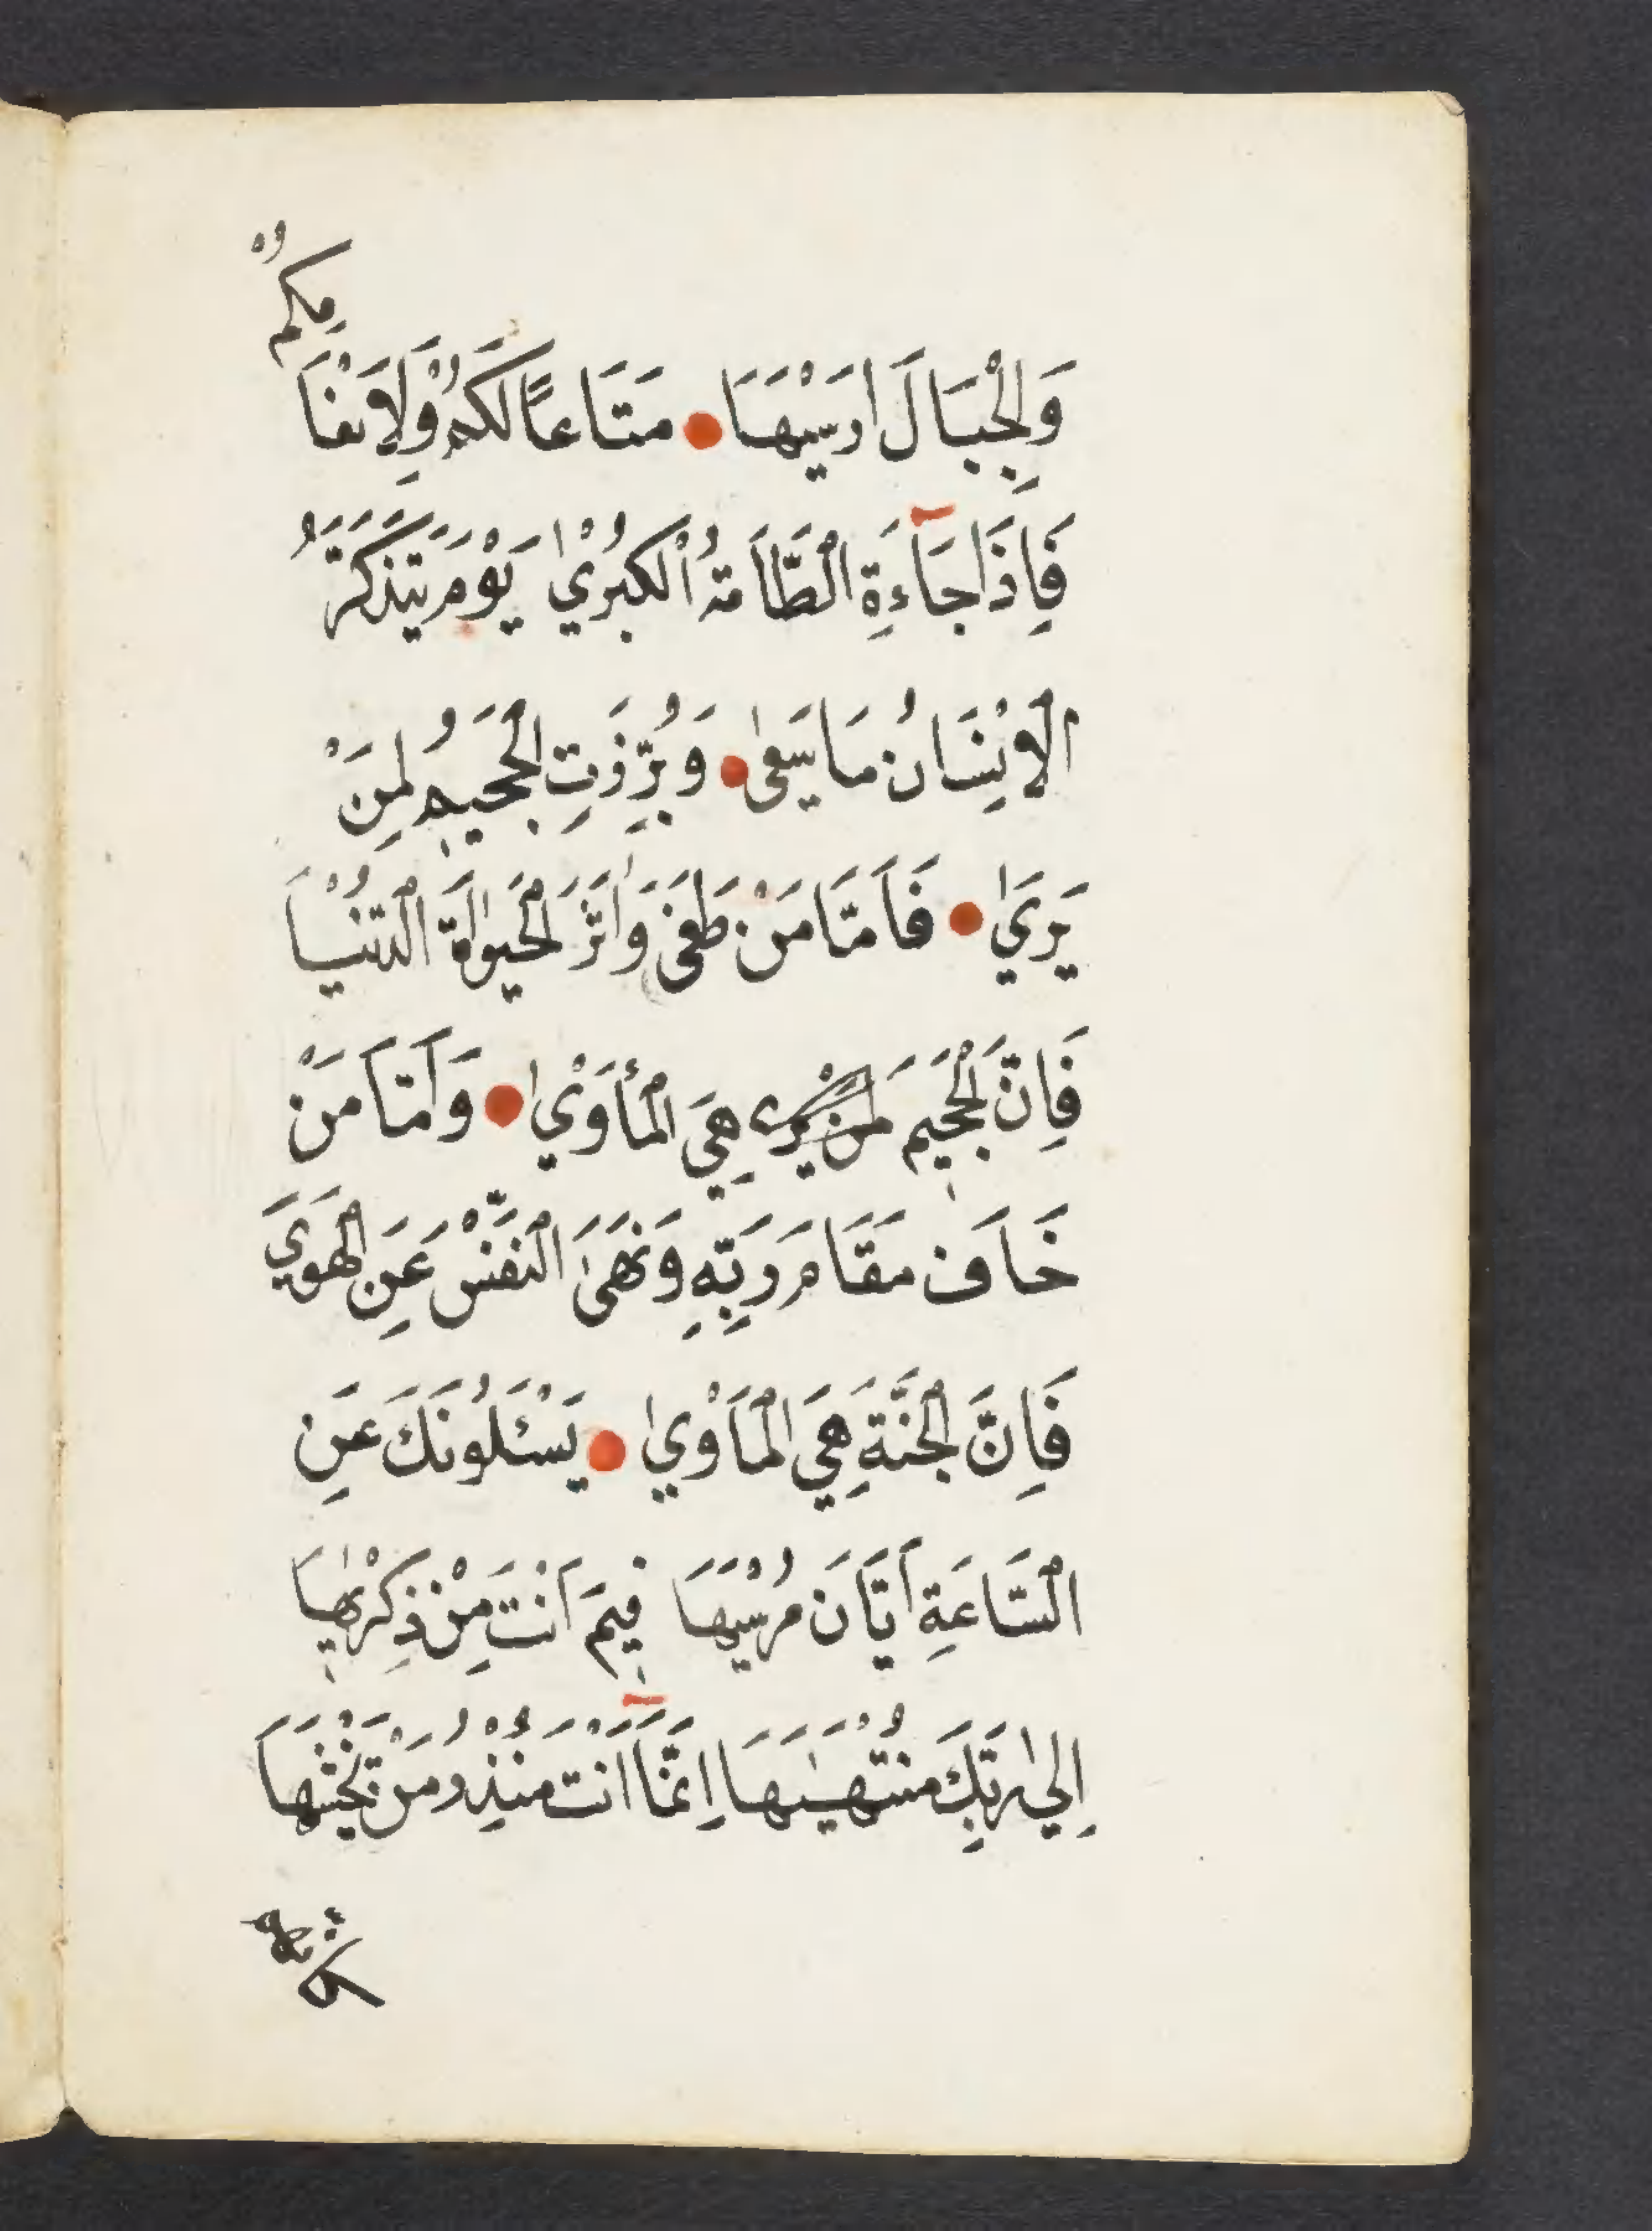 وَالْجِبَالَ ارَسْيٰهَا مَتَاعًا لَكُمْ وَلِاَنْعَا
مِكُمْ
فَاِذَا جَآءَةِ الْطَّاَمةُ اُلْكبُرْيٰ يَوْمَ يَتَذَكَّرُ
الْاِنْسَانُ مَا سَعٰى وَبُرِّزَتِ الْجَحيمُ لِمَنْ
يَرَيٰ فَاَمَّا مَنْ طَغَى وَاٰثَرَ الْحَيَوٰاةَ الْدُنْيَا
فَاِنَّ الْجَحيمَ لمن يرى هِيَ الْمأَوْيٰ وَاَمَّا مَنْ
خَافَ مَقَامَ رَبِّهِ وَنَهَىٰ النَّفْسَ عَنِ الْهَوَيَ
فَاِنَّ الْجَنَّةَ هِيَ الْمَاَوْيٰ يَسْئَلُونَكَ عَنِ
الْسَّاعَةِ اَيَّانَ مُرْسَيهَا فيمَ اَنْتَ مِنْ ذِكْرٰيهَا
اِلىٰ رَبِّكَ مُنْتَهٰيهَا اِنَّمَآ اَنْتَ مُنْذِرُ مَنْ يَخْشٰهَا